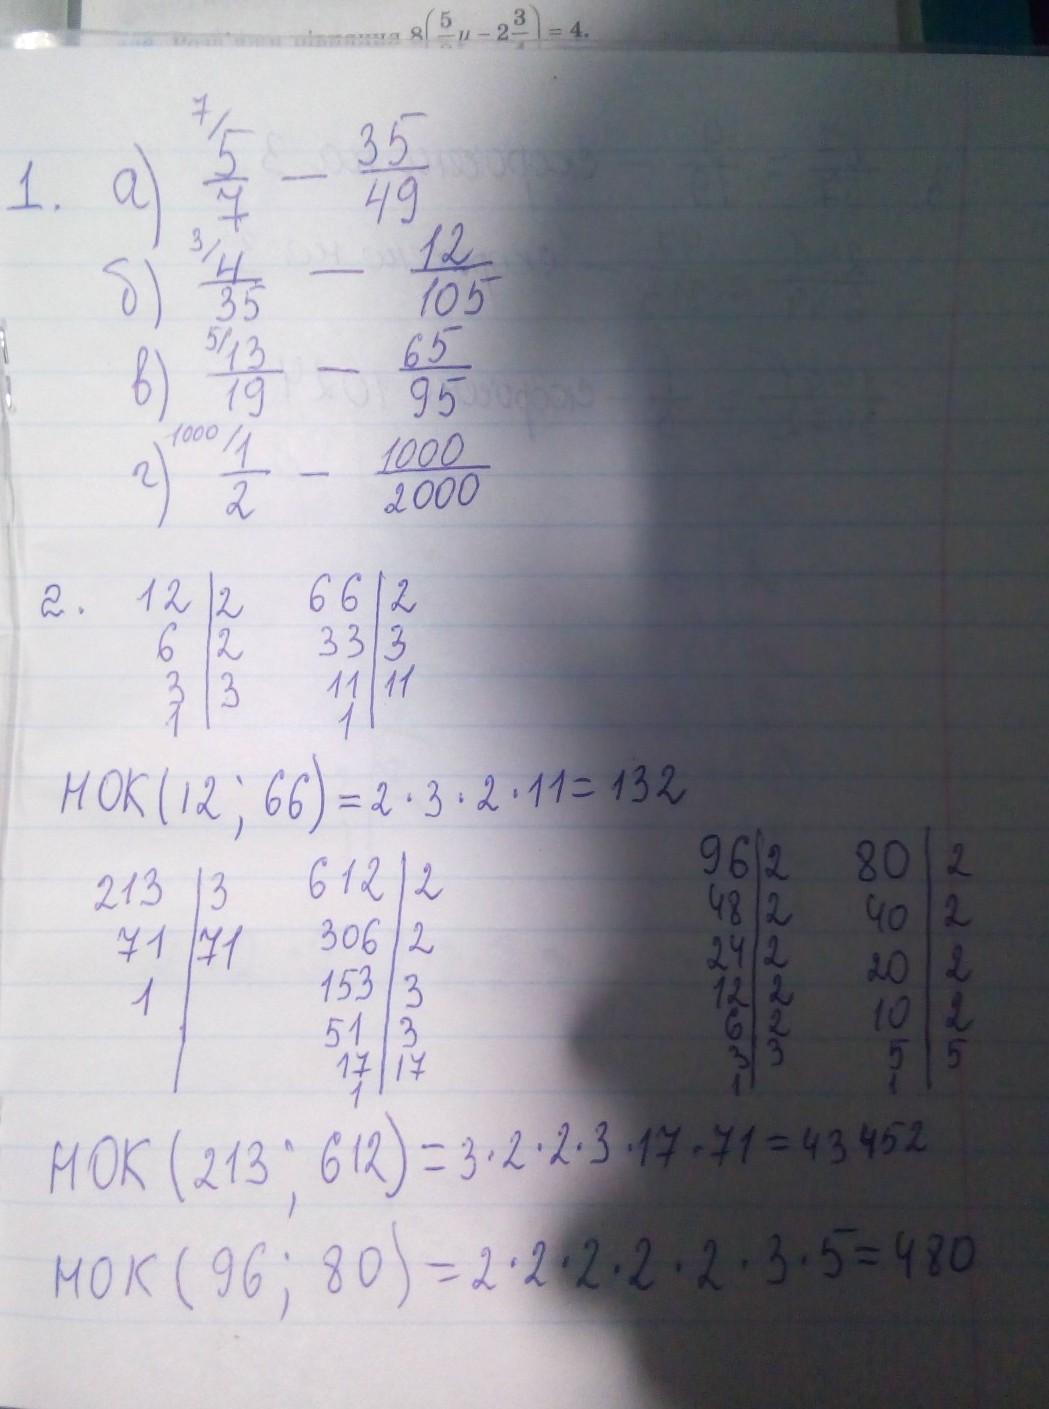 8(5/ y − 2 3/4) = 4.
1. а) 7/ 5/7 — 35/49
б) 3/ 4/35 — 12/105
в) 5/ 13/19 — 65/95
г) 1000/ 1/2 — 1000/2000
2. 12 | 2 66 | 2
6 | 2 33 | 3
3 | 3 11 | 11
1 | 1 |
НОК(12; 66) = 2 · 3 · 2 · 11 = 132
213 | 3 612 | 2 96 | 2 80 | 2
71 | 71 306 | 2 48 | 2 40 | 2
1 | 153 | 3 24 | 2 20 | 2
51 | 3 12 | 2 10 | 2
17 | 17 6 | 2 5 | 5
1 | 3 | 3 1 |
1 |
НОК(213; 612) = 3 · 2 · 2 · 3 · 17 · 71 = 43452
НОК(96; 80) = 2 · 2 · 2 · 2 · 2 · 3 · 5 = 480